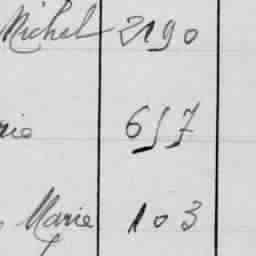 Michel 2190
rie 657
Marie 103